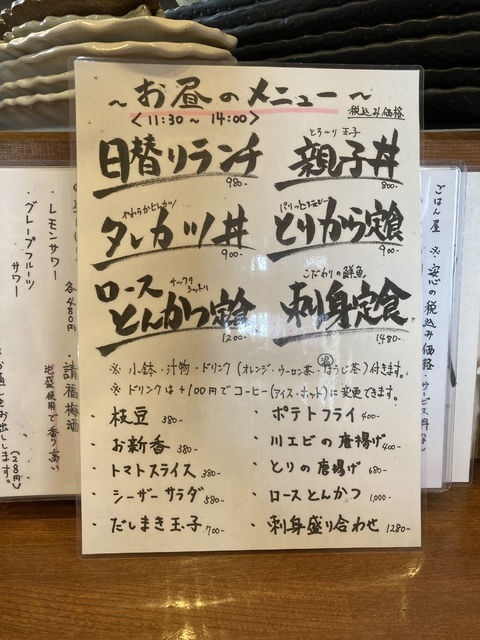 ~お昼のメニュー~
<11:30~14:00>
税込み価格
日替りランチ
980-
とろ~り玉子
親子丼
800-
やわらかヒレカツ
タレカツ丼
900-
パリッとジューシー
とりから定食
900-
サックリ
ロース
とんかつ定食
1200-
こだわりの鮮魚
刺身定食
1480-
※小鉢・汁物・ドリンク(オレンジ・ウーロン茶・温ほうじ茶)付きます。
※ドリンクは+100円でコーヒー(アイス・ホット)に変更できます。
・枝豆 380-
・お新香 380-
・トマトスライス 380-
・シーザーサラダ 580-
・だしまき玉子 700-
・ポテトフライ 400-
・川エビの唐揚げ 400-
・とりの唐揚げ 680-
・ロースとんかつ 1,000-
・刺身盛り合わせ 1280-
ごはん屋
※安心の税込み価格・サービス料なし
・レモンサワー
・グレープフルーツ
サワー
各480円
・請福梅酒
泡盛使用で香り高い
お通し
お出しします。